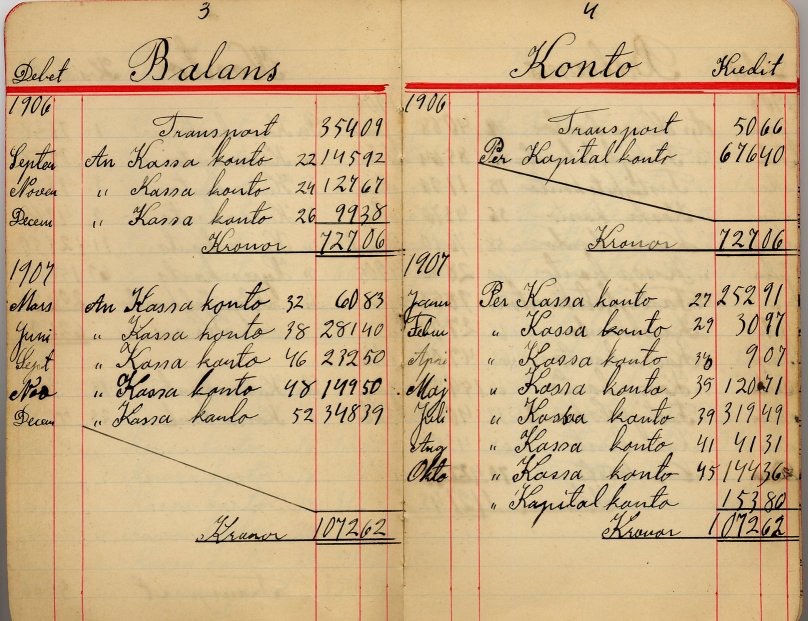 3
Debet Balans
1906
Transport 354 09
Septem An Kassa konto 22 145 92
Novem " Kassa konto 24 127 67
Decem " Kassa konto 26 99 38
Kronor 727 06
1907
Mars An Kassa konto 32 60 83
Juni " Kassa konto 38 281 40
Sept " Kassa konto 46 232 50
Nov " Kassa konto 48 149 50
Decem " Kassa konto 52 348 39
Kronor 1072 62
4
Konto Kredit
1906
Transport 50 66
Per Kapital konto 676 40
Kronor 727 06
1907
Janu Per Kassa konto 27 252 91
Febru " Kassa konto 29 30 97
April " Kassa konto 9 07
Maj " Kassa konto 35 120 71
Juli " Kassa konto 39 319 49
Aug " Kassa konto 41 41 31
Okto " Kassa konto 45 144 36
" Kapital konto 153 80
Kronor 1072 62